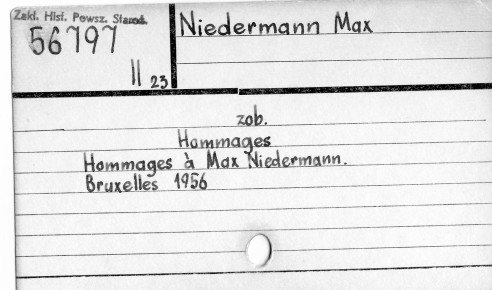 Zakl. Hist. Powsz. Staroż.
56797
II 23
Niedermann Max
zob.
Hommages
Hommages à Max Niedermann.
Bruxelles 1956